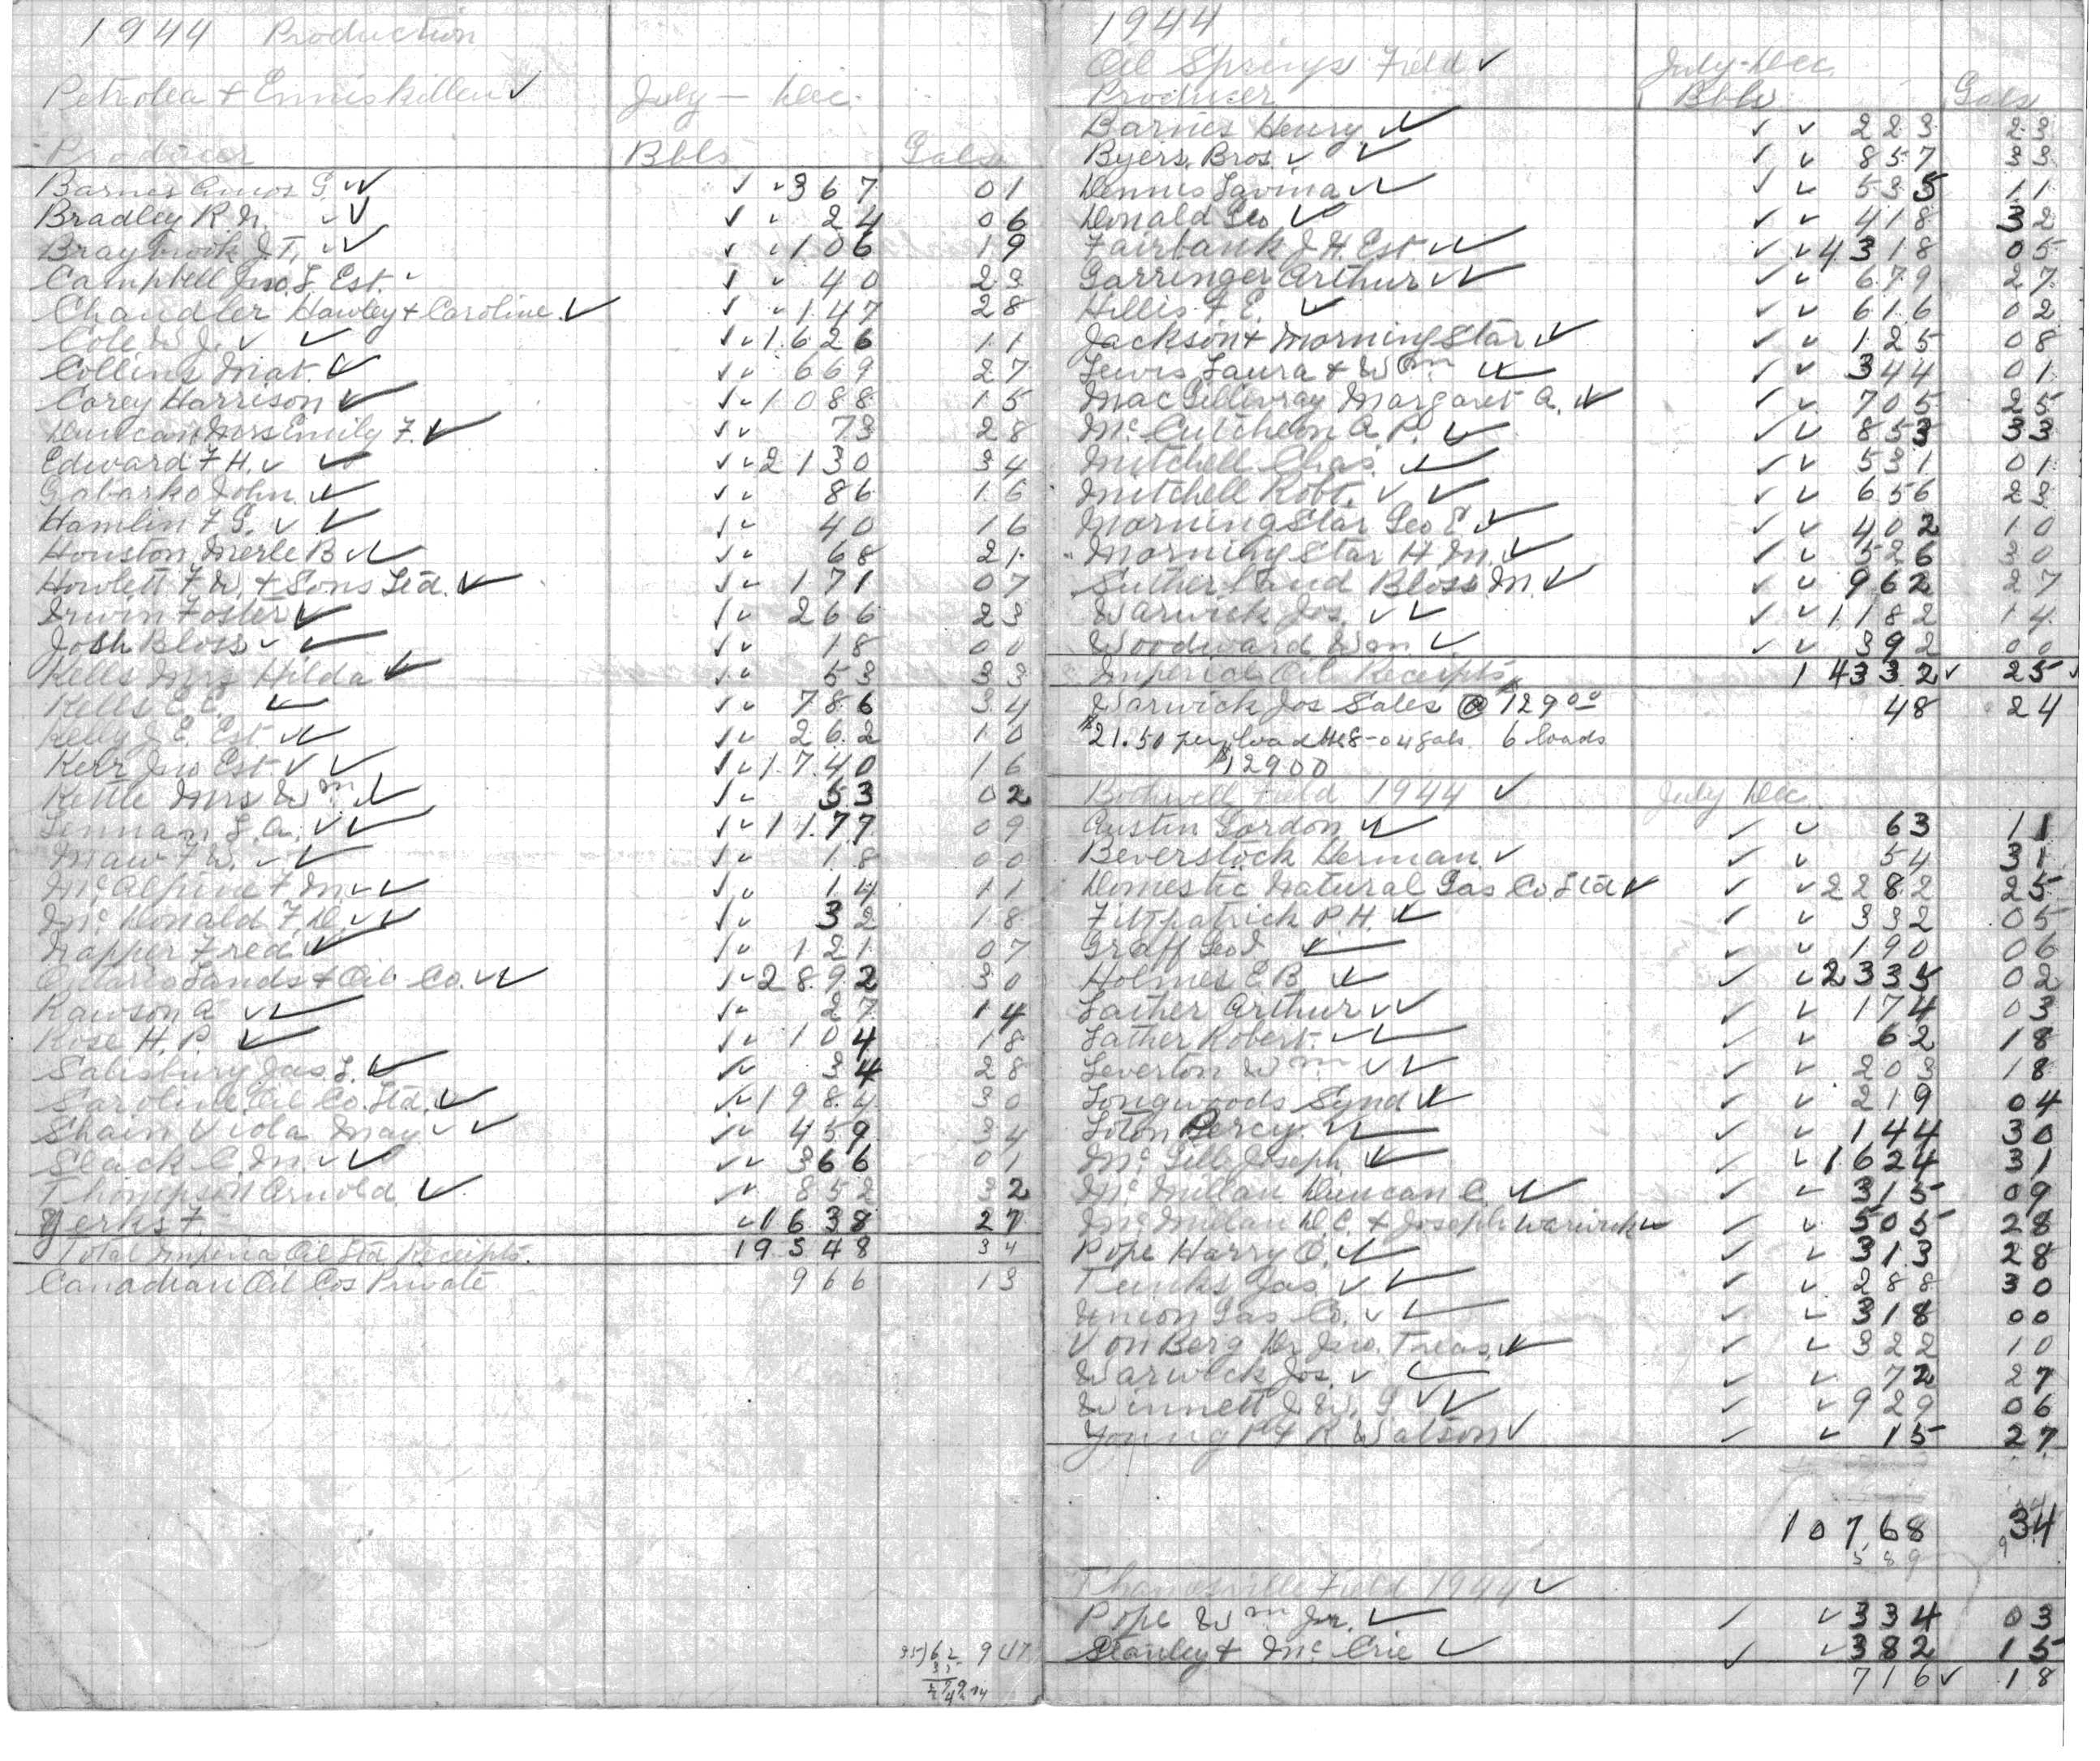 1944 Production
Petrolea + Enniskillen ✓ July — Dec.
Producer Bbls Gals
Barnes Amos G. ✓✓ ✓ ✓ 367 01
Bradley R. N. ✓✓ ✓ ✓ 24 06
Braybrook J. T. ✓✓ ✓ ✓ 106 19
Campbell Jno. L. Est. ✓ ✓ ✓ 40 23
Chandler Hawley + Caroline ✓ ✓ ✓ 147 28
Cole W. J. ✓ ✓ ✓ ✓ 1626 11
Collins Mat. ✓ ✓ ✓ 669 27
Corey Harrison ✓ ✓ ✓ 1088 15
Duncan Mrs Emily F. ✓ ✓ ✓ 73 28
Edward F H. ✓ ✓ ✓ ✓ 2130 34
Gabarko John ✓ ✓ ✓ 86 16
Hamlin F G. ✓ ✓ ✓ ✓ 40 16
Houston Merle B ✓✓ ✓ ✓ 68 21
Howlett F. W. + Sons Ltd. ✓ ✓ ✓ 171 07
Irwin Foster ✓ ✓ ✓ 266 23
Josh Bloss ✓ ✓ ✓ ✓ 18 00
Kells Mrs Hilda ✓ ✓ ✓ 53 33
Kells C. E. ✓ ✓ ✓ 786 34
Kelly J. E. Est. ✓✓ ✓ ✓ 262 10
Kerr Jno Est. ✓ ✓ ✓ ✓ 1740 16
Kettle Mrs Wm ✓ ✓ ✓ 53 02
Lennan L. A. ✓✓ ✓ ✓ 1177 09
Maw F W. ✓ ✓ ✓ ✓ 18 00
McAlpine F M. ✓✓ ✓ ✓ 14 11
McDonald F. D. ✓✓ ✓ ✓ 32 18
Napper Fred ✓ ✓ ✓ 121 07
Ontario Lands + Oil Co. ✓✓ ✓ ✓ 2892 30
Rawson A ✓✓ ✓ ✓ 27 14
Rose H. P. ✓ ✓ ✓ 104 18
Salisbury Jas. L. ✓ ✓ ✓ 34 28
Saroline Oil Co. Ltd. ✓ ✓ ✓ 1984 30
Shain Viola May ✓ ✓ ✓ ✓ 459 34
Slack C. M. ✓✓ ✓ ✓ 366 01
Thompson Arnold ✓ ✓ ✓ 852 32
Yerks F. ✓ 1638 27
Total Imperia Oil Ltd Receipts. 19548 34
Canadian Oil Cos Private 966 13
35)62 9(17
35
279
1944
Oil Springs Field ✓ July-Dec.
Producer Bbls Gals
Barnes Henry ✓✓ ✓ ✓ 223 23
Byers Bros ✓ ✓ ✓ ✓ 857 33
Dennis Lavina ✓✓ ✓ ✓ 535 11
Donald Geo ✓✓ ✓ ✓ 418 32
Fairbank J. H. Est. ✓✓ ✓ ✓ 4318 05
Garringer Arthur ✓✓ ✓ ✓ 679 27
Hillis F. E. ✓ ✓ ✓ 616 02
Jackson + MorningStar ✓ ✓ ✓ 125 08
Lewis Laura + Wm ✓✓ ✓ ✓ 344 01
MacGillivray Margaret A. ✓✓ ✓ ✓ 705 25
McCutcheon A. P. ✓ ✓ ✓ 853 33
Mitchell Chas. ✓ ✓ ✓ 531 01
Mitchell Robt. ✓ ✓ ✓ ✓ 656 23
MorningStar Geo E ✓ ✓ ✓ 402 10
" MorningStar H. M. ✓ ✓ ✓ 526 30
Sutherland Bloss M. ✓ ✓ ✓ 962 27
Warwick Jos. ✓ ✓ ✓ ✓ 1182 14
Woodward Wm ✓ ✓ ✓ 392 00
Imperial Oil Receipts 14332 ✓ 25 ✓
Warwick Jos Sales @ $129.00 48 24
$21.50 per load 8-04 gals. 6 loads
$129.00
Bothwell Field 1944 ✓ July Dec.
Austin Gordon ✓✓ ✓ ✓ 63 11
Beverstock Herman ✓ ✓ ✓ 54 31
Domestic Natural Gas Co. Ltd ✓ ✓ ✓ 2282 25
Fitzpatrick P. H. ✓ ✓ ✓ 332 05
Graff Geo J. ✓ ✓ ✓ 190 06
Holmes E B ✓ ✓ ✓ 2335 02
Lather Arthur ✓✓ ✓ ✓ 174 03
Lather Robert. ✓✓ ✓ ✓ 62 18
Leverton Wm ✓✓ ✓ ✓ 203 18
Longwoods Synd ✓ ✓ ✓ 219 04
Loton Percy. ✓✓ ✓ ✓ 144 30
McGill Joseph ✓ ✓ ✓ 1624 31
McMillan Duncan C. ✓✓ ✓ ✓ 315 09
McMillan D. C. + Joseph Warwick ✓ ✓ ✓ 505 28
Pope Harry O. ✓✓ ✓ ✓ 313 28
Tunks Jas ✓ ✓ ✓ ✓ 288 30
Union Gas Co. ✓ ✓ ✓ ✓ 318 00
Von Berg Dr Jno. Treas. ✓ ✓ ✓ 322 10
Warwick Jos. ✓ ✓ ✓ ✓ 72 27
Winnett J. W. G ✓✓ ✓ ✓ 929 06
Young R Watson ✓ ✓ ✓ 15 27
10768 34
589 9
Thamesville Field 1944 ✓
Pope Wm Jr. ✓ ✓ ✓ 334 03
Stanley + McCrie ✓ ✓ ✓ 382 15
716 ✓ 18